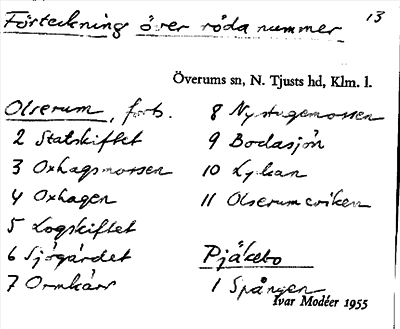 Förteckning över röda nummer
13
Överums sn, N. Tjusts hd, Klm. l.
Olserum, forts.
2 Statskiftet
3 Oxhagsmossen
4 Oxhagen
5 Logskiftet
6 Sjögärdet
7 Ormkärr
8 Nystugemossen
9 Bodasjön
10 Lyckan
11 Olserumsviken
Pjäkebo
1 Spången
Ivar Modéer 1955